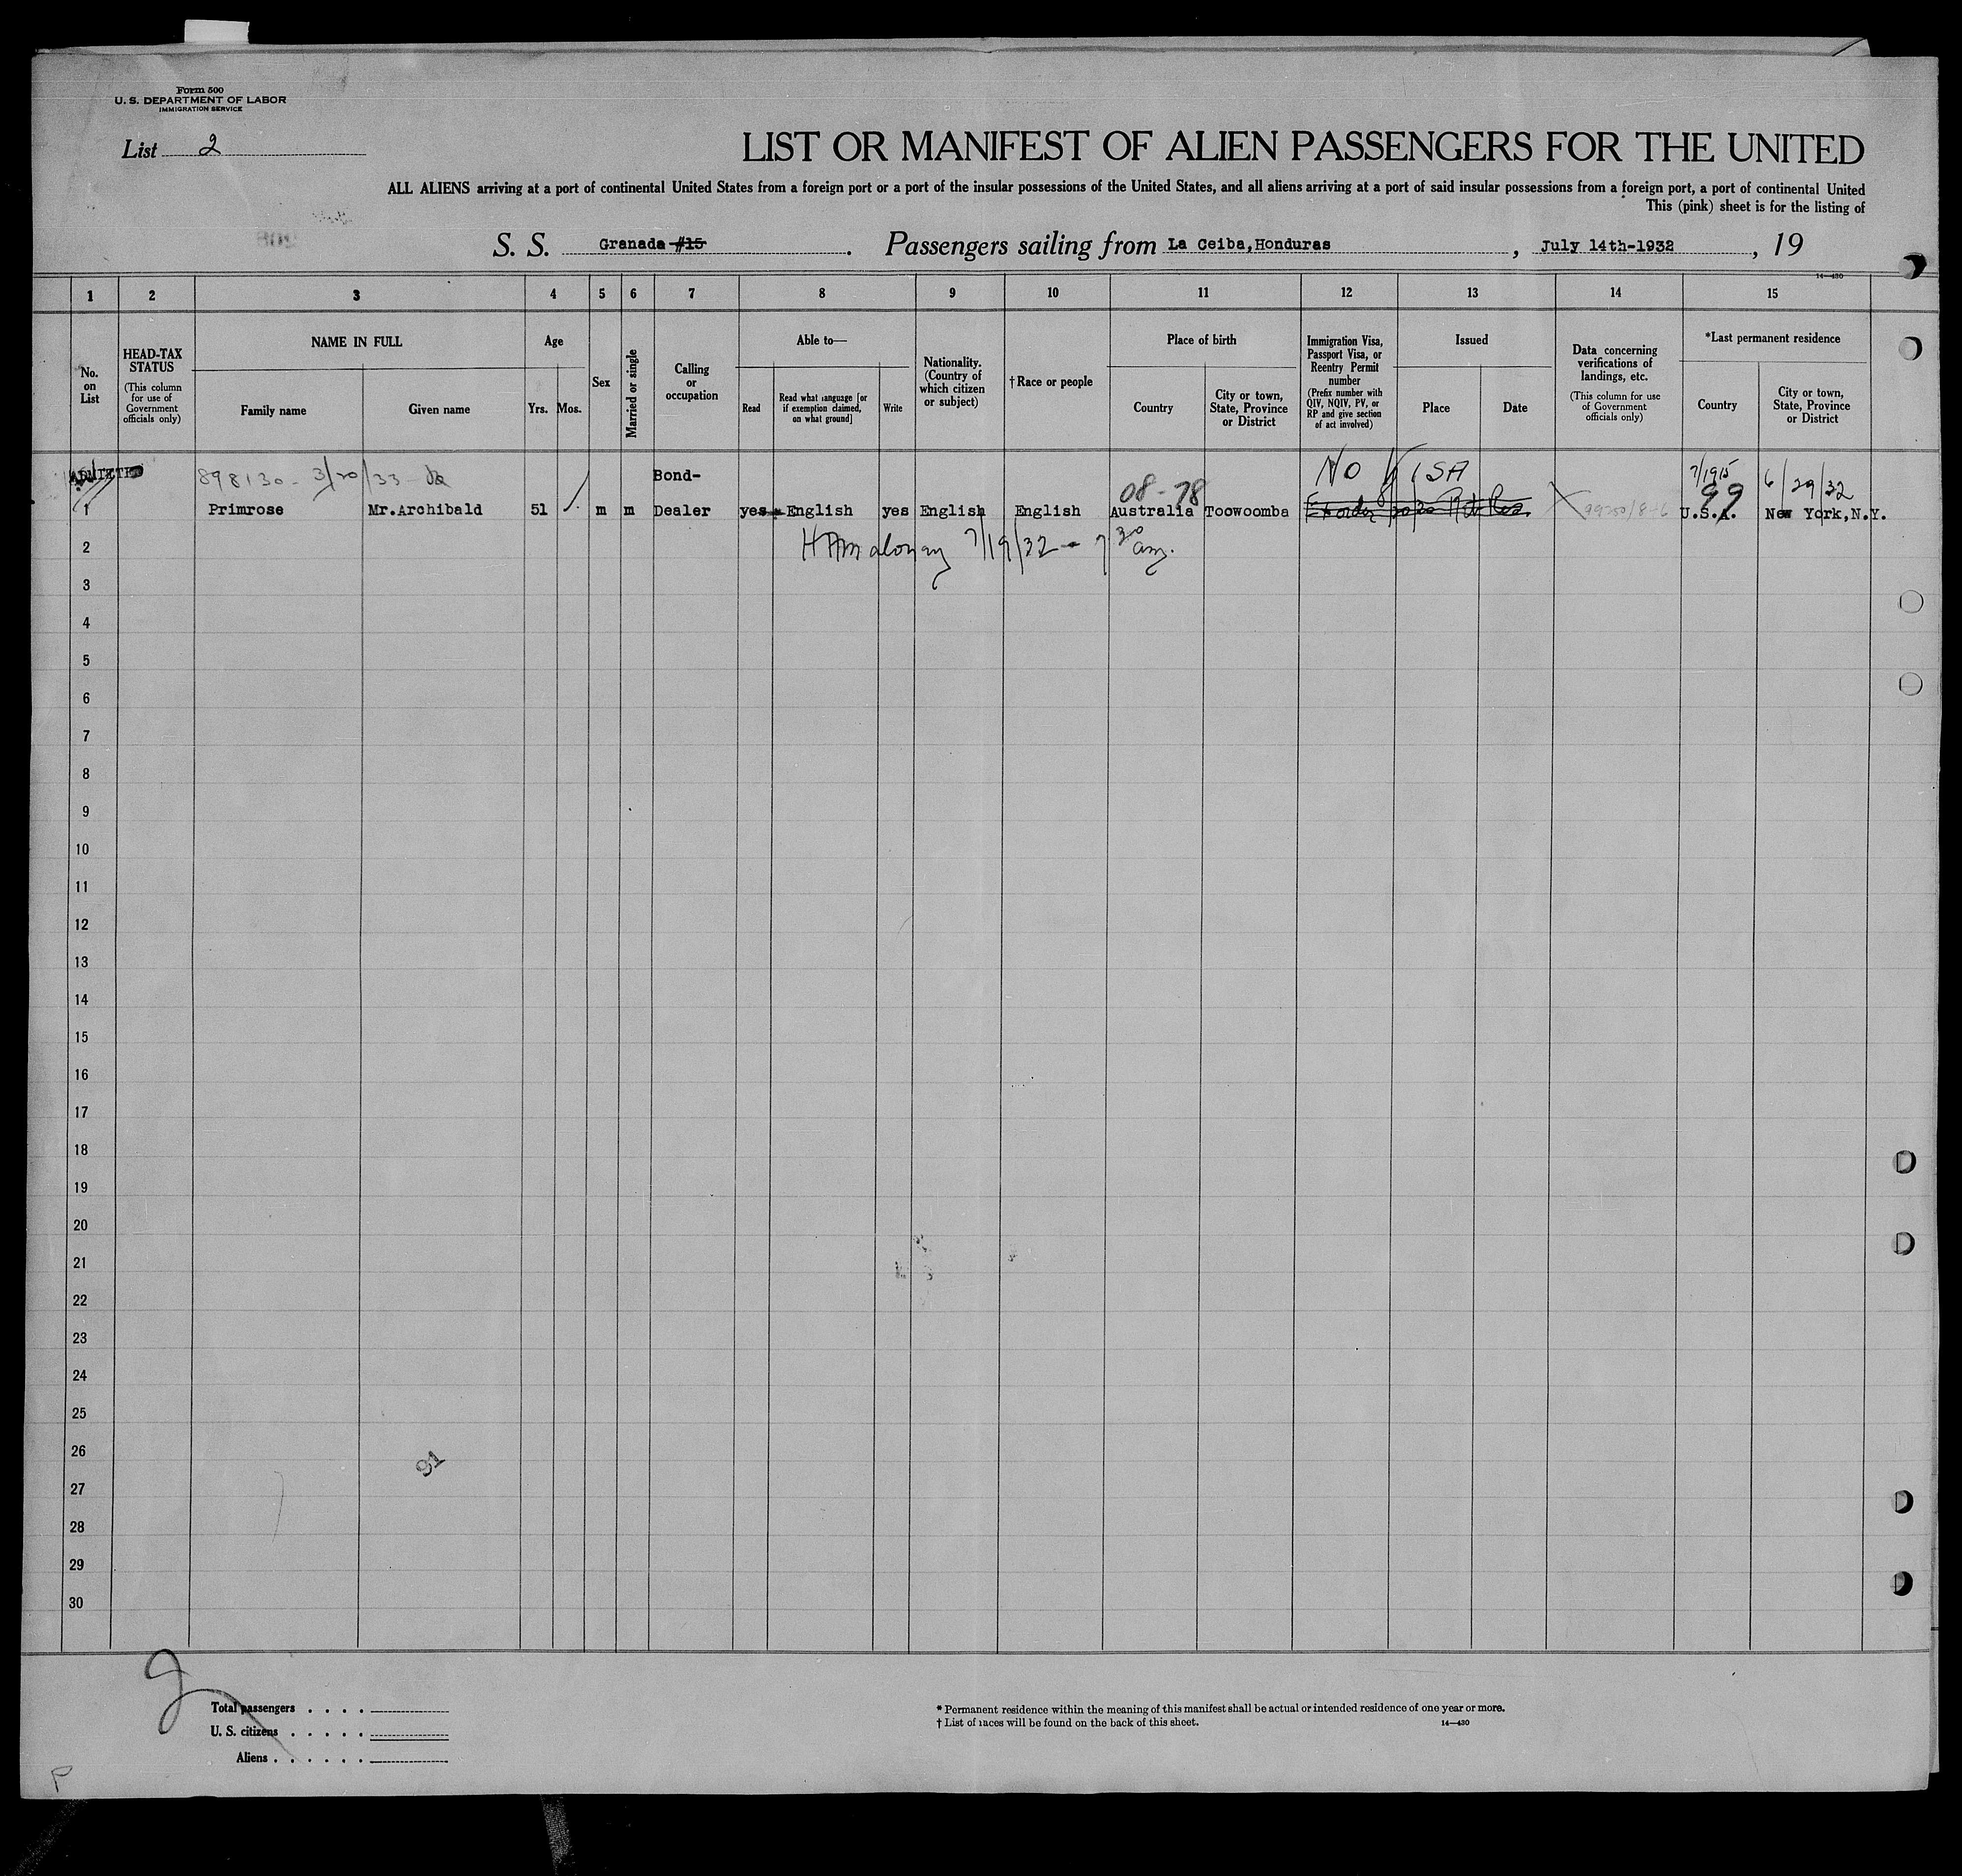 Form 500
U. S. DEPARTMENT OF LABOR
IMMIGRATION SERVICE
List 2
LIST OR MANIFEST OF ALIEN PASSENGERS FOR THE UNITED
ALL ALIENS arriving at a port of continental United States from a foreign port or a port of the insular possessions of the United States, and all aliens arriving at a port of said insular possessions from a foreign port, a port of continental United
This (pink) sheet is for the listing of
S. S. Granada #15. Passengers sailing from La Ceiba,Honduras, July 14th-1932, 19
14—430
1 2 3 4 5 6 7 8 9 10 11 12 13 14 15
No. on List
HEAD-TAX STATUS (This column for use of Government officials only)
NAME IN FULL
Family name
Given name
Age
Yrs. Mos.
Sex
Married or single
Calling or occupation
Able to—
Read
Read what language [or if exemption claimed, on what ground]
Write
Nationality. (Country of which citizen or subject)
†Race or people
Place of birth
Country
City or town, State, Province or District
Immigration Visa, Passport Visa, or Reentry Permit number (Prefix number with QIV, NQIV, PV, or RP and give section of act involved)
Issued
Place
Date
Data concerning verifications of landings, etc. (This column for use of Government officials only)
*Last permanent residence
Country
City or town, State, Province or District
ADMITTED 898130 - 3/20/33 Bond- 08-78 NO VISA 7/1915 99 6/29/32
1 Primrose Mr.Archibald 51 m m Dealer yes English yes English English Australia Toowoomba U.S.A. New York,N.Y.
2 7/19/32 - 7 30 am.
3
4
5
6
7
8
9
10
11
12
13
14
15
16
17
18
19
20
21
22
23
24
25
26
91
27
28
29
30
2
Total passengers . . . .
U. S. citizens . . . . .
Aliens . . . . . .
* Permanent residence within the meaning of this manifest shall be actual or intended residence of one year or more.
† List of races will be found on the back of this sheet.
14—430
P